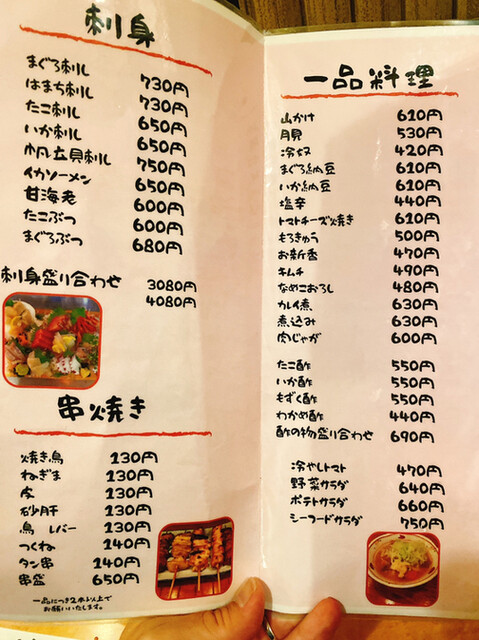 刺身
まぐろ刺し 730円
はまち刺し 730円
たこ刺し 650円
いか刺し 650円
帆立貝刺し 750円
イカソーメン 650円
甘海老 600円
たこぶつ 600円
まぐろぶつ 680円
刺身盛り合わせ 3080円
4080円
串焼き
焼き鳥 130円
ねぎま 130円
皮 130円
砂肝 130円
鳥レバー 130円
つくね 140円
タン串 140円
串盛 650円
一品につき2本以上で
お願いいたします。
一品料理
山かけ 610円
月見 530円
冷奴 420円
まぐろ納豆 610円
いか納豆 610円
塩辛 440円
トマトチーズ焼き 610円
もろきゅう 500円
お新香 470円
キムチ 490円
なめこおろし 480円
カレイ煮 630円
煮込み 630円
肉じゃが 600円
たこ酢 550円
いか酢 550円
もずく酢 550円
わかめ酢 440円
酢の物盛り合わせ 690円
冷やしトマト 470円
野菜サラダ 640円
ポテトサラダ 660円
シーフードサラダ 750円